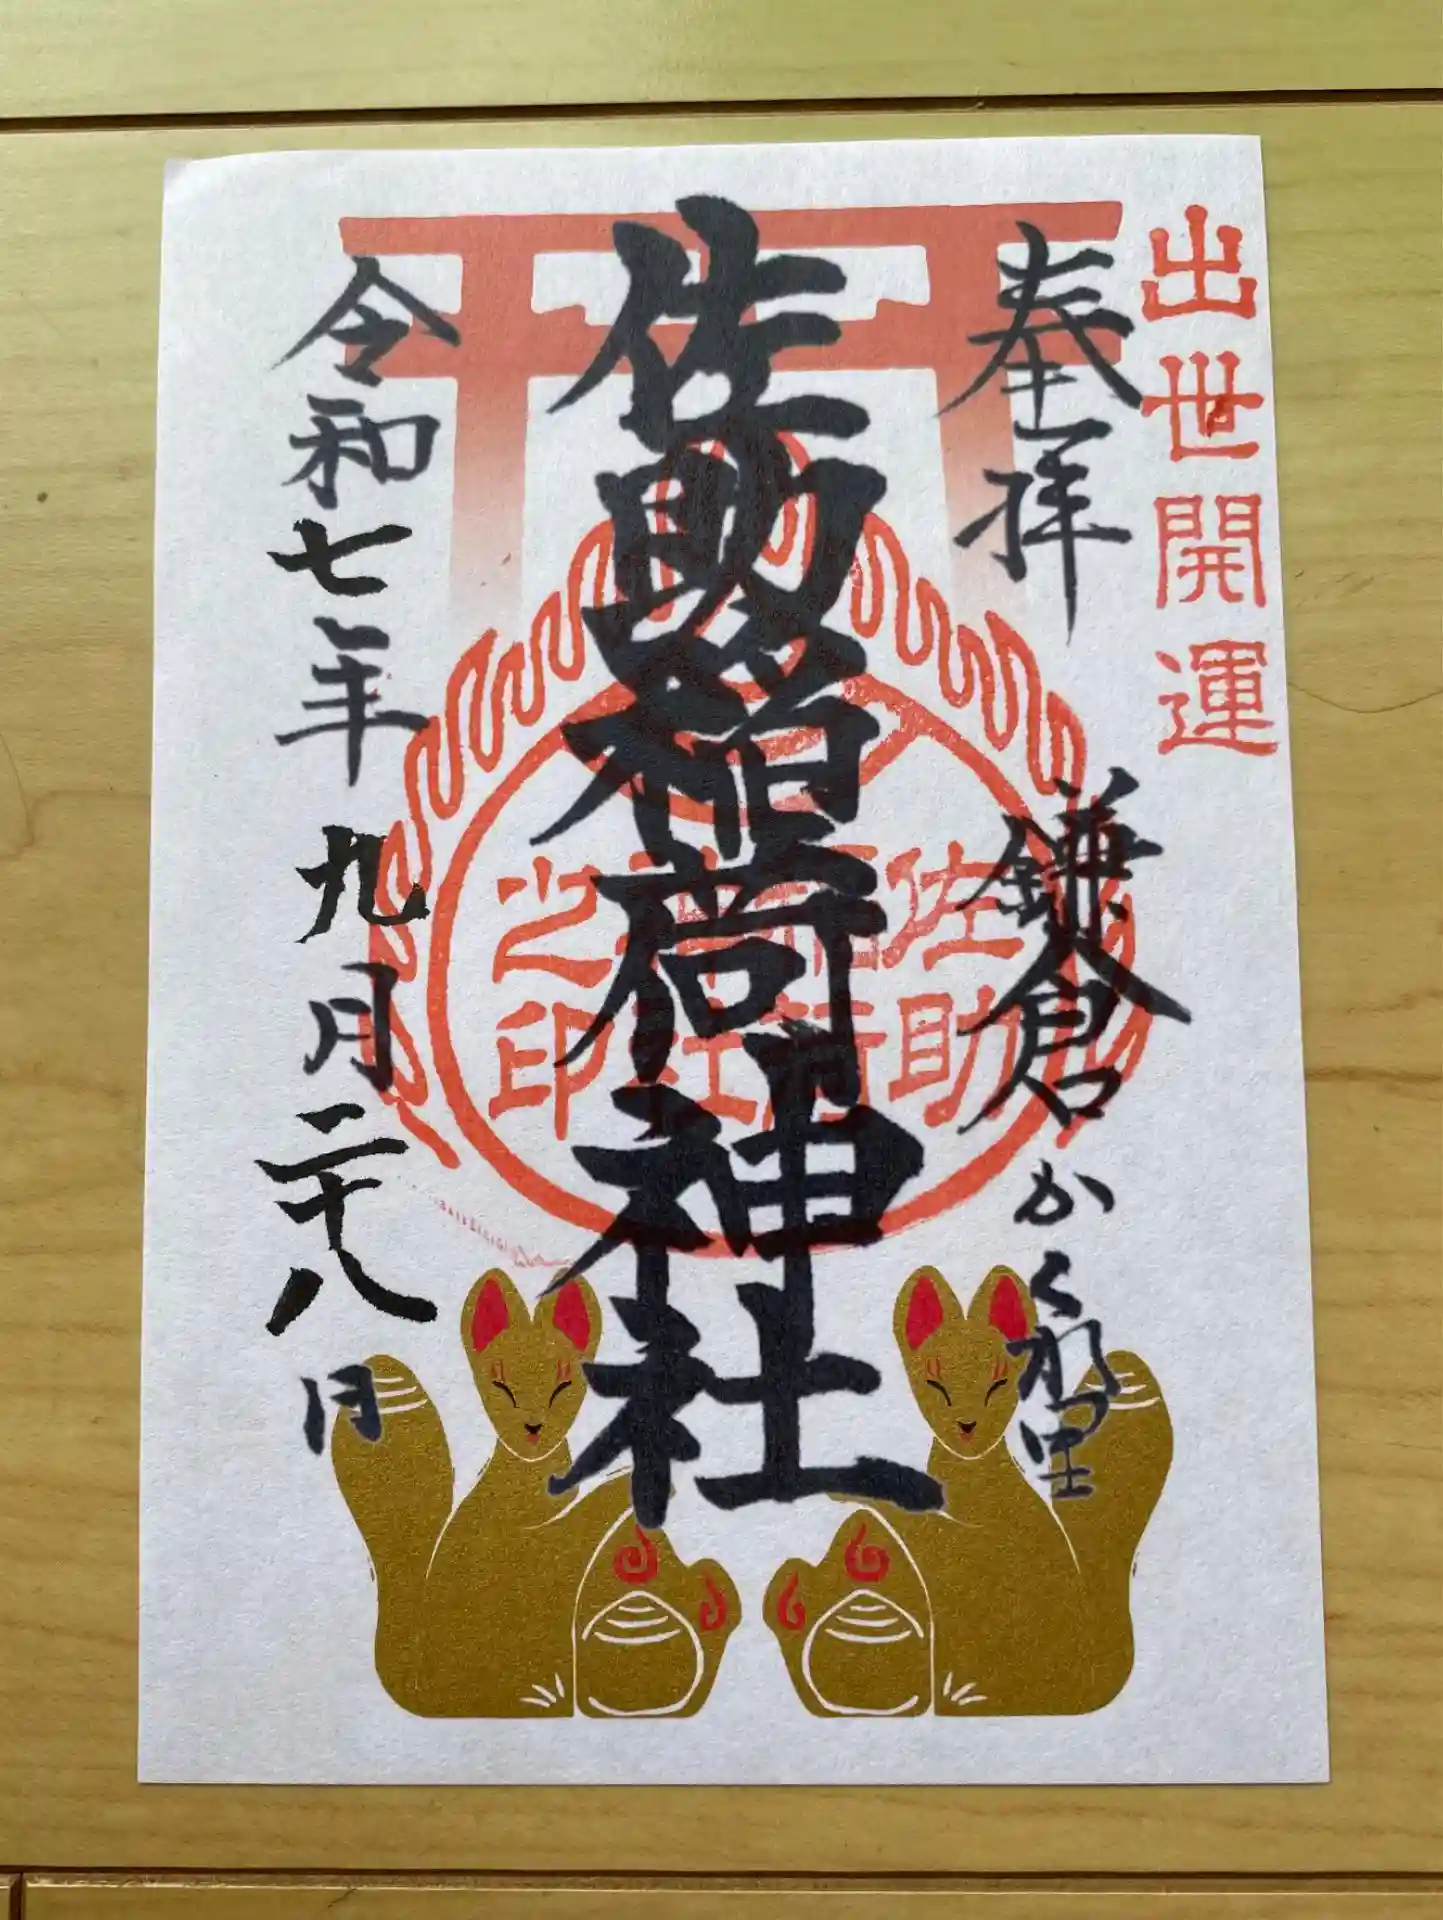 出世開運
奉拝
鎌倉かくれ里
佐助稲荷神社
佐助稲荷神社之印
令和七年九月二十八日